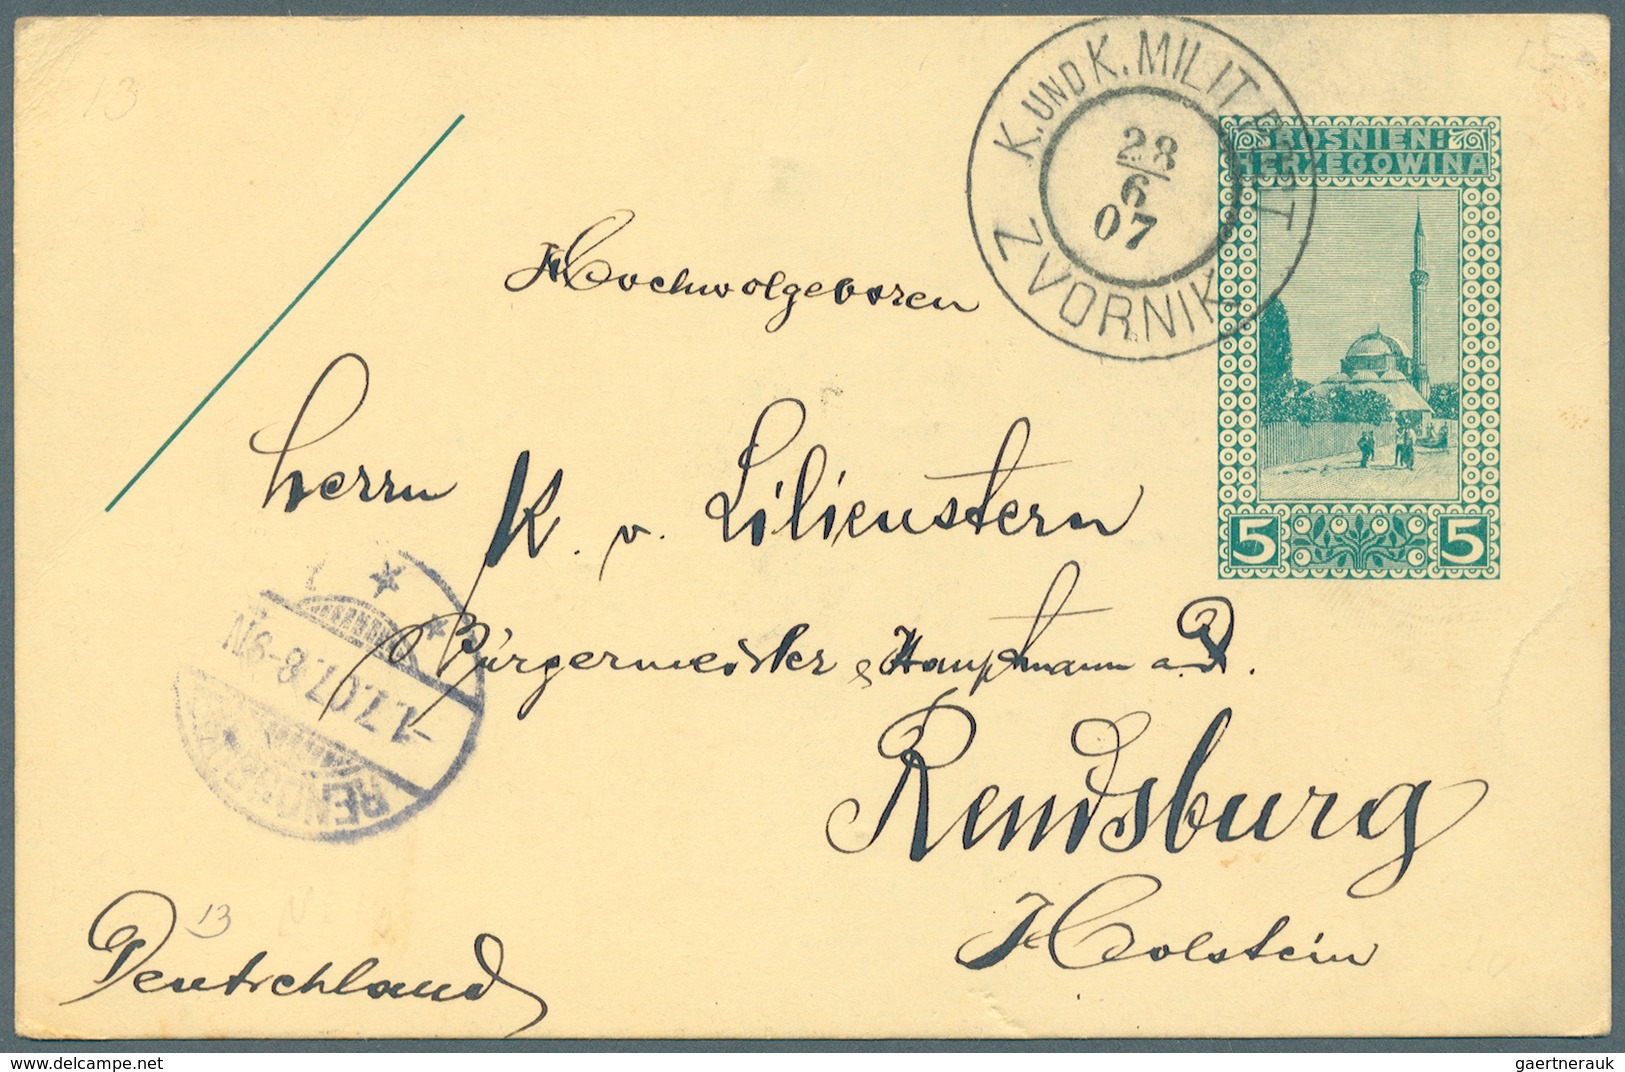 13
K. UND K. MILIT. POST
ZVORNIK
28
6
07
BOSNIEN:
HERZEGOWINA
5 5
Hochwolgeboren
Herrn K. v. Lilienstern
Bürgermeister & Hauptmann a. D.
Rendsburg
Holstein
-1.7.07.8-9N
13
Deutschland
delcampe.net
gaertnerauk